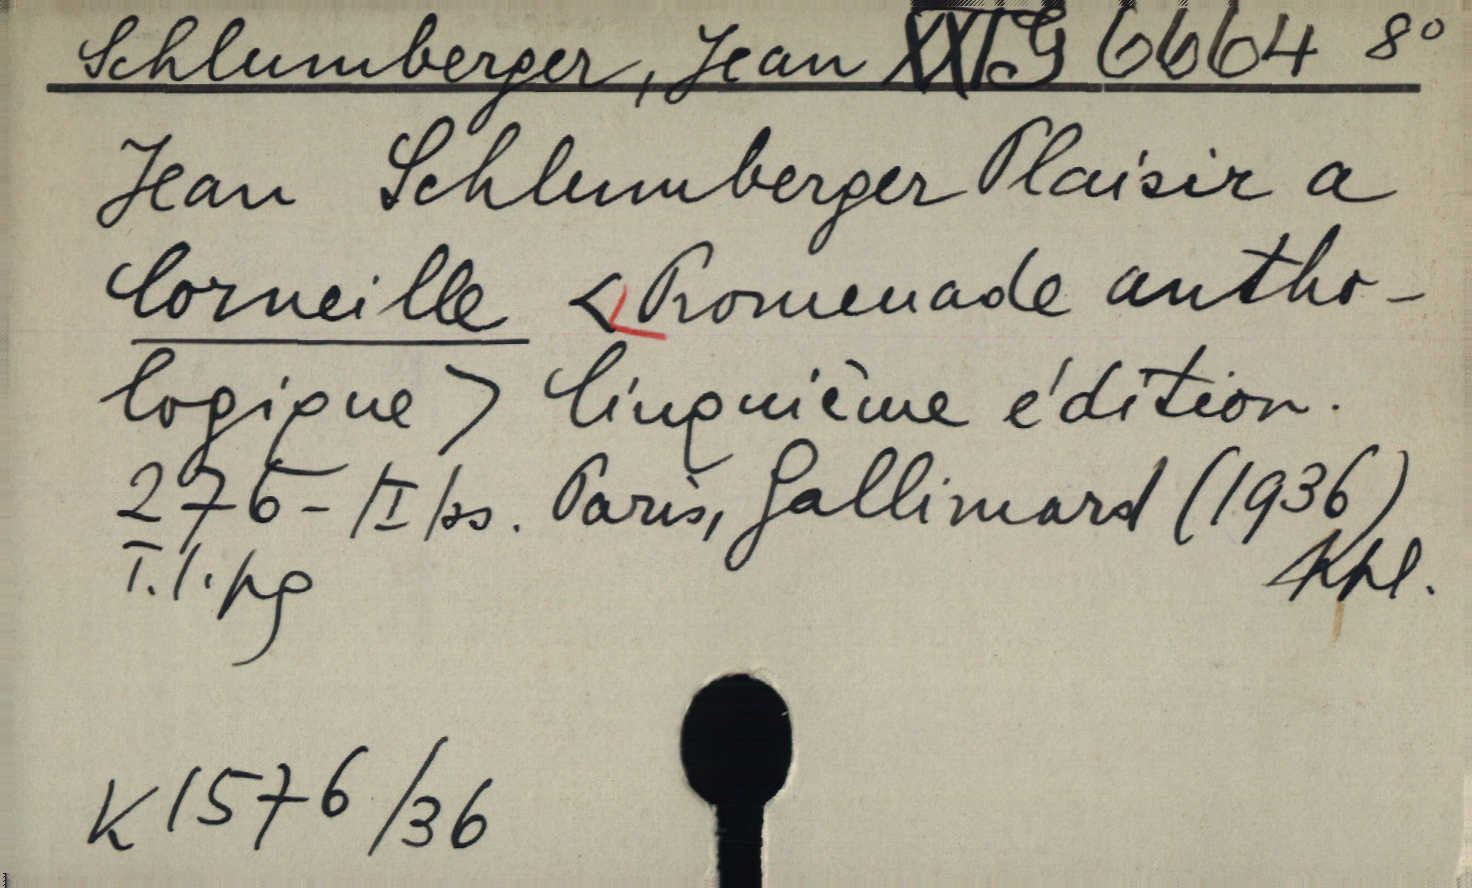 Schlumberger, Jean XXI G 6664 8°
Jean Schlumberger Plaisir a
Corneille < Promenade antho-
logique > Cinquième édition.
276 - /I/ ss. Paris, Gallimard (1936)
T.l.pg Kpl.
K 1576/36